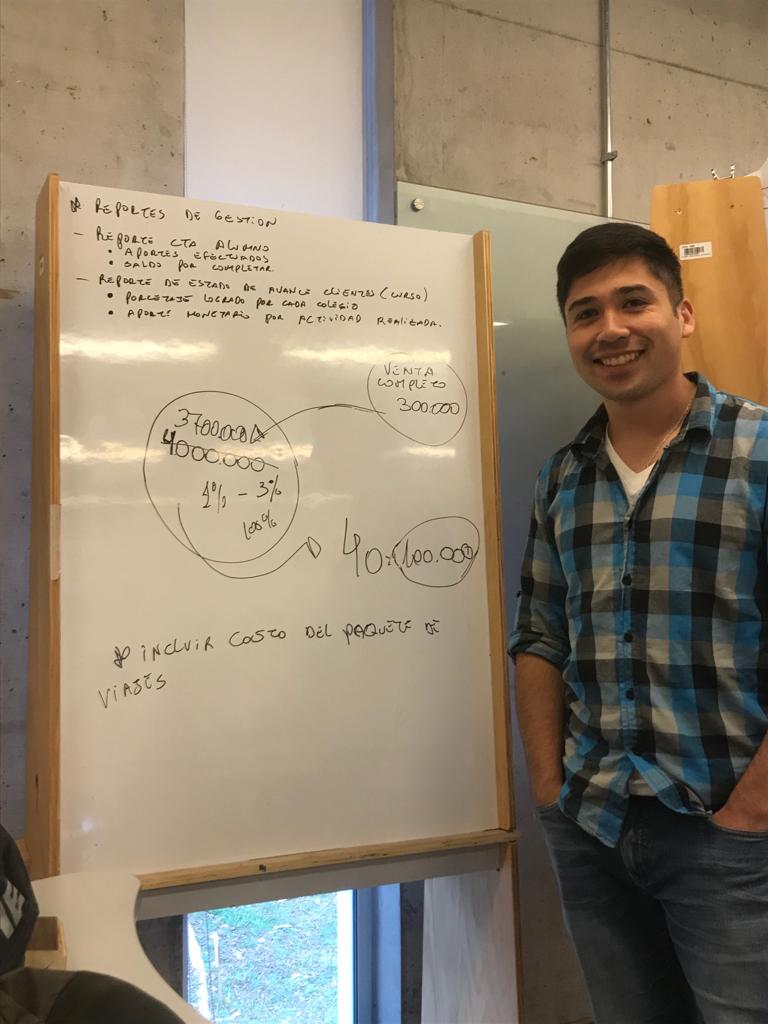 * REPORTES DE GESTION
- REPORTE CTA ALUMNO
• APORTES EFECTUADOS
• SALDO POR COMPLETAR.
- REPORTE DE ESTADO DE AVANCE CLIENTES (CURSO)
• PORCETAJE LOGRADO POR CADA COLEGIO
• APORTE MONETARIO POR ACTIVIDAD REALIZADA.
VENTA
COMPLETO
300.000
3700.000
4000.000
1% - 3%
100%
40.100.000
* INCLUIR COSTO DEL PAQUETE DE
VIAJES